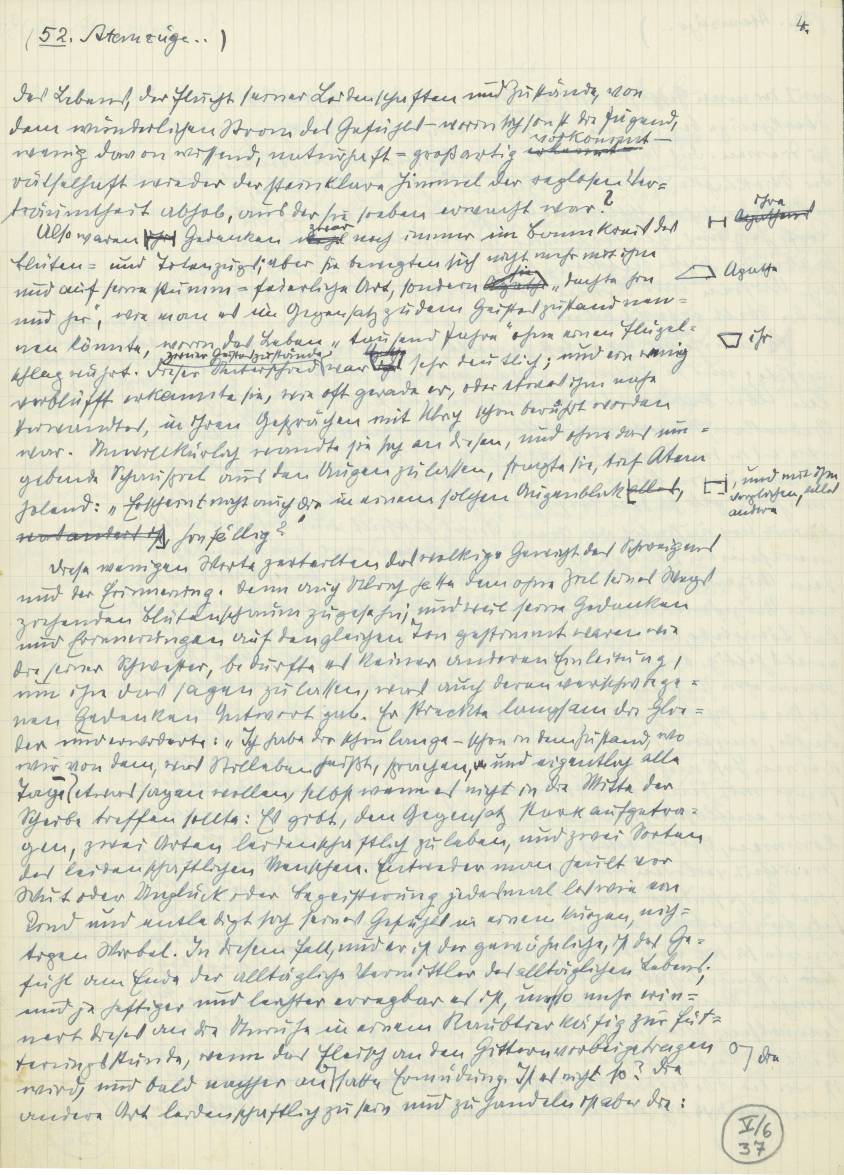 (52. Atemzüge..)
4.
des Lebens, der Flucht seiner Leidenschaften und Zustände, von
dem wunderlichen Strom des Gefühls – worin sich sonst die Jugend,
vorkommt –
wenig davon wissend, naturhaft-großartig
rätselhaft wieder der sternklare Himmel der reglosen Ver=
träumtheit abhob, aus der sie soeben erwacht war?
ihre
Also waren Gedanken zwar noch immer im Bannkreis des
Blüten= und Totenzugs; aber sie bewegten sich nicht mehr mit ihm
und auf seine stumm=feierliche Art, sondern sie „dachte hin
Agathe
und her", wie man es im Gegensatz zu dem Geisteszustand nen=
nen könnte, worin das Leben „tausend Jahre" ohne einen Flügel=
ihr
schlag währt. Dieser Unterschied zweier Geisteszustände war sehr deutlich; und ein wenig
verblüfft erkannte sie, wie oft gerade er, oder etwas ihm nahe
Verwandtes, in ihren Gesprächen mit Ulrich schon berührt worden
war. Unwillkürlich wandte sie sich an diesen, und ohne das um=
gebende Schauspiel aus den Augen zu lassen, fragte sie, tief Atem
holend: „Erscheint nicht auch dir in einem solchen Augenblick alles,
, und mit ihm
verglichen, alles
andere
und andere ist, hinfällig?"
Diese wenigen Worte zerteilten das wolkige Gewicht des Schweigens
und der Erinnerung. Denn auch Ulrich hatte dem ohne Ziel seines Wegs
ziehenden Blütenschaum zugesehn; und weil seine Gedanken
und Erinnerungen auf den gleichen Ton gestimmt waren wie
die seiner Schwester, bedurfte es keiner anderen Einleitung,
um ihn das sagen zu lassen, was auch deren verschwiege=
nen Gedanken Antwort gab. Er streckte langsam die Glie=
der und erwiderte: „Ich habe dir schon lange – schon in dem Zustand, wo
wir von dem, was Stilleben heißt, sprachen, und eigentlich alle
Tage etwas sagen wollen, selbst wenn es nicht in die Mitte der
Scheibe treffen sollte: Es gibt, den Gegensatz stark aufgetra=
gen, zwei Arten leidenschaftlich zu leben, und zwei Sorten
des leidenschaftlichen Menschen. Entweder man heult vor
Wut oder Unglück oder Begeisterung jedesmal los wie ein
Kind und entledigt sich seines Gefühls in einem kurzen, nich=
tigen Wirbel. In diesem Fall, und er ist der gewöhnliche, ist das Ge=
fühl am Ende der alltägliche Vermittler des alltäglichen Lebens;
und je heftiger und leichter erregbar es ist, umso mehr erin=
nert dieses an die Unruhe in einem Raubtierkäfig zur Füt=
terungsstunde, wenn das Fleisch an den Gittern vorbeigetragen
die
wird, und bald nachher an satte Ermüdung. Ist es nicht so? Die
andere Art leidenschaftlich zu sein und zu handeln ist aber die:
V/6
37